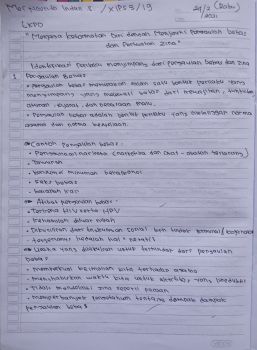 Margareta Intan S / XI IPS 3 / 19
24/2 (Rabu)
2021
LKPD
"Menjaga kehormatan diri dengan Menjauhi Pergaulan bebas
dan Perbuatan Zina"
Identifikasi Perilaku menyimpang dari pergaulan bebas dan zina
1 Pergaulan Bebas
• Pergaulan bebas merupakan salah satu bentuk perilaku yang
menyimpang yang melewati batas dari kewajiban, tuntutan,
aturan, syarat, dan perasaan malu.
• Pergaulan bebas adalah bentuk perilaku yang melanggar norma
agama dan norma kesusilaan.
Contoh Pergaulan bebas :
• Penyalahgunaan narkotika (narkotika dan obat-obatan terlarang)
• Tawuran
• konsumsi minuman beralkohol
• Seks bebas
• balapan liar
Akibat pergaulan bebas :
• Terkena HIV serta HPV
• Kehamilan diluar nikah
• Dikucilkan dari lingkungan sosial baik lingkup
terjerumus kepada hal" negatif
Usaha yang dilakukan untuk terhindar dari pergaulan
bebas
• memperkuat keimanan kita terhadap agama
• menghabiskan waktu kita untuk aktivitas yang produktif
• Tidak mendekati zina seperti pacaran
• memperbanyak pengetahuan tentang dampak dampak
pergaulan bebas